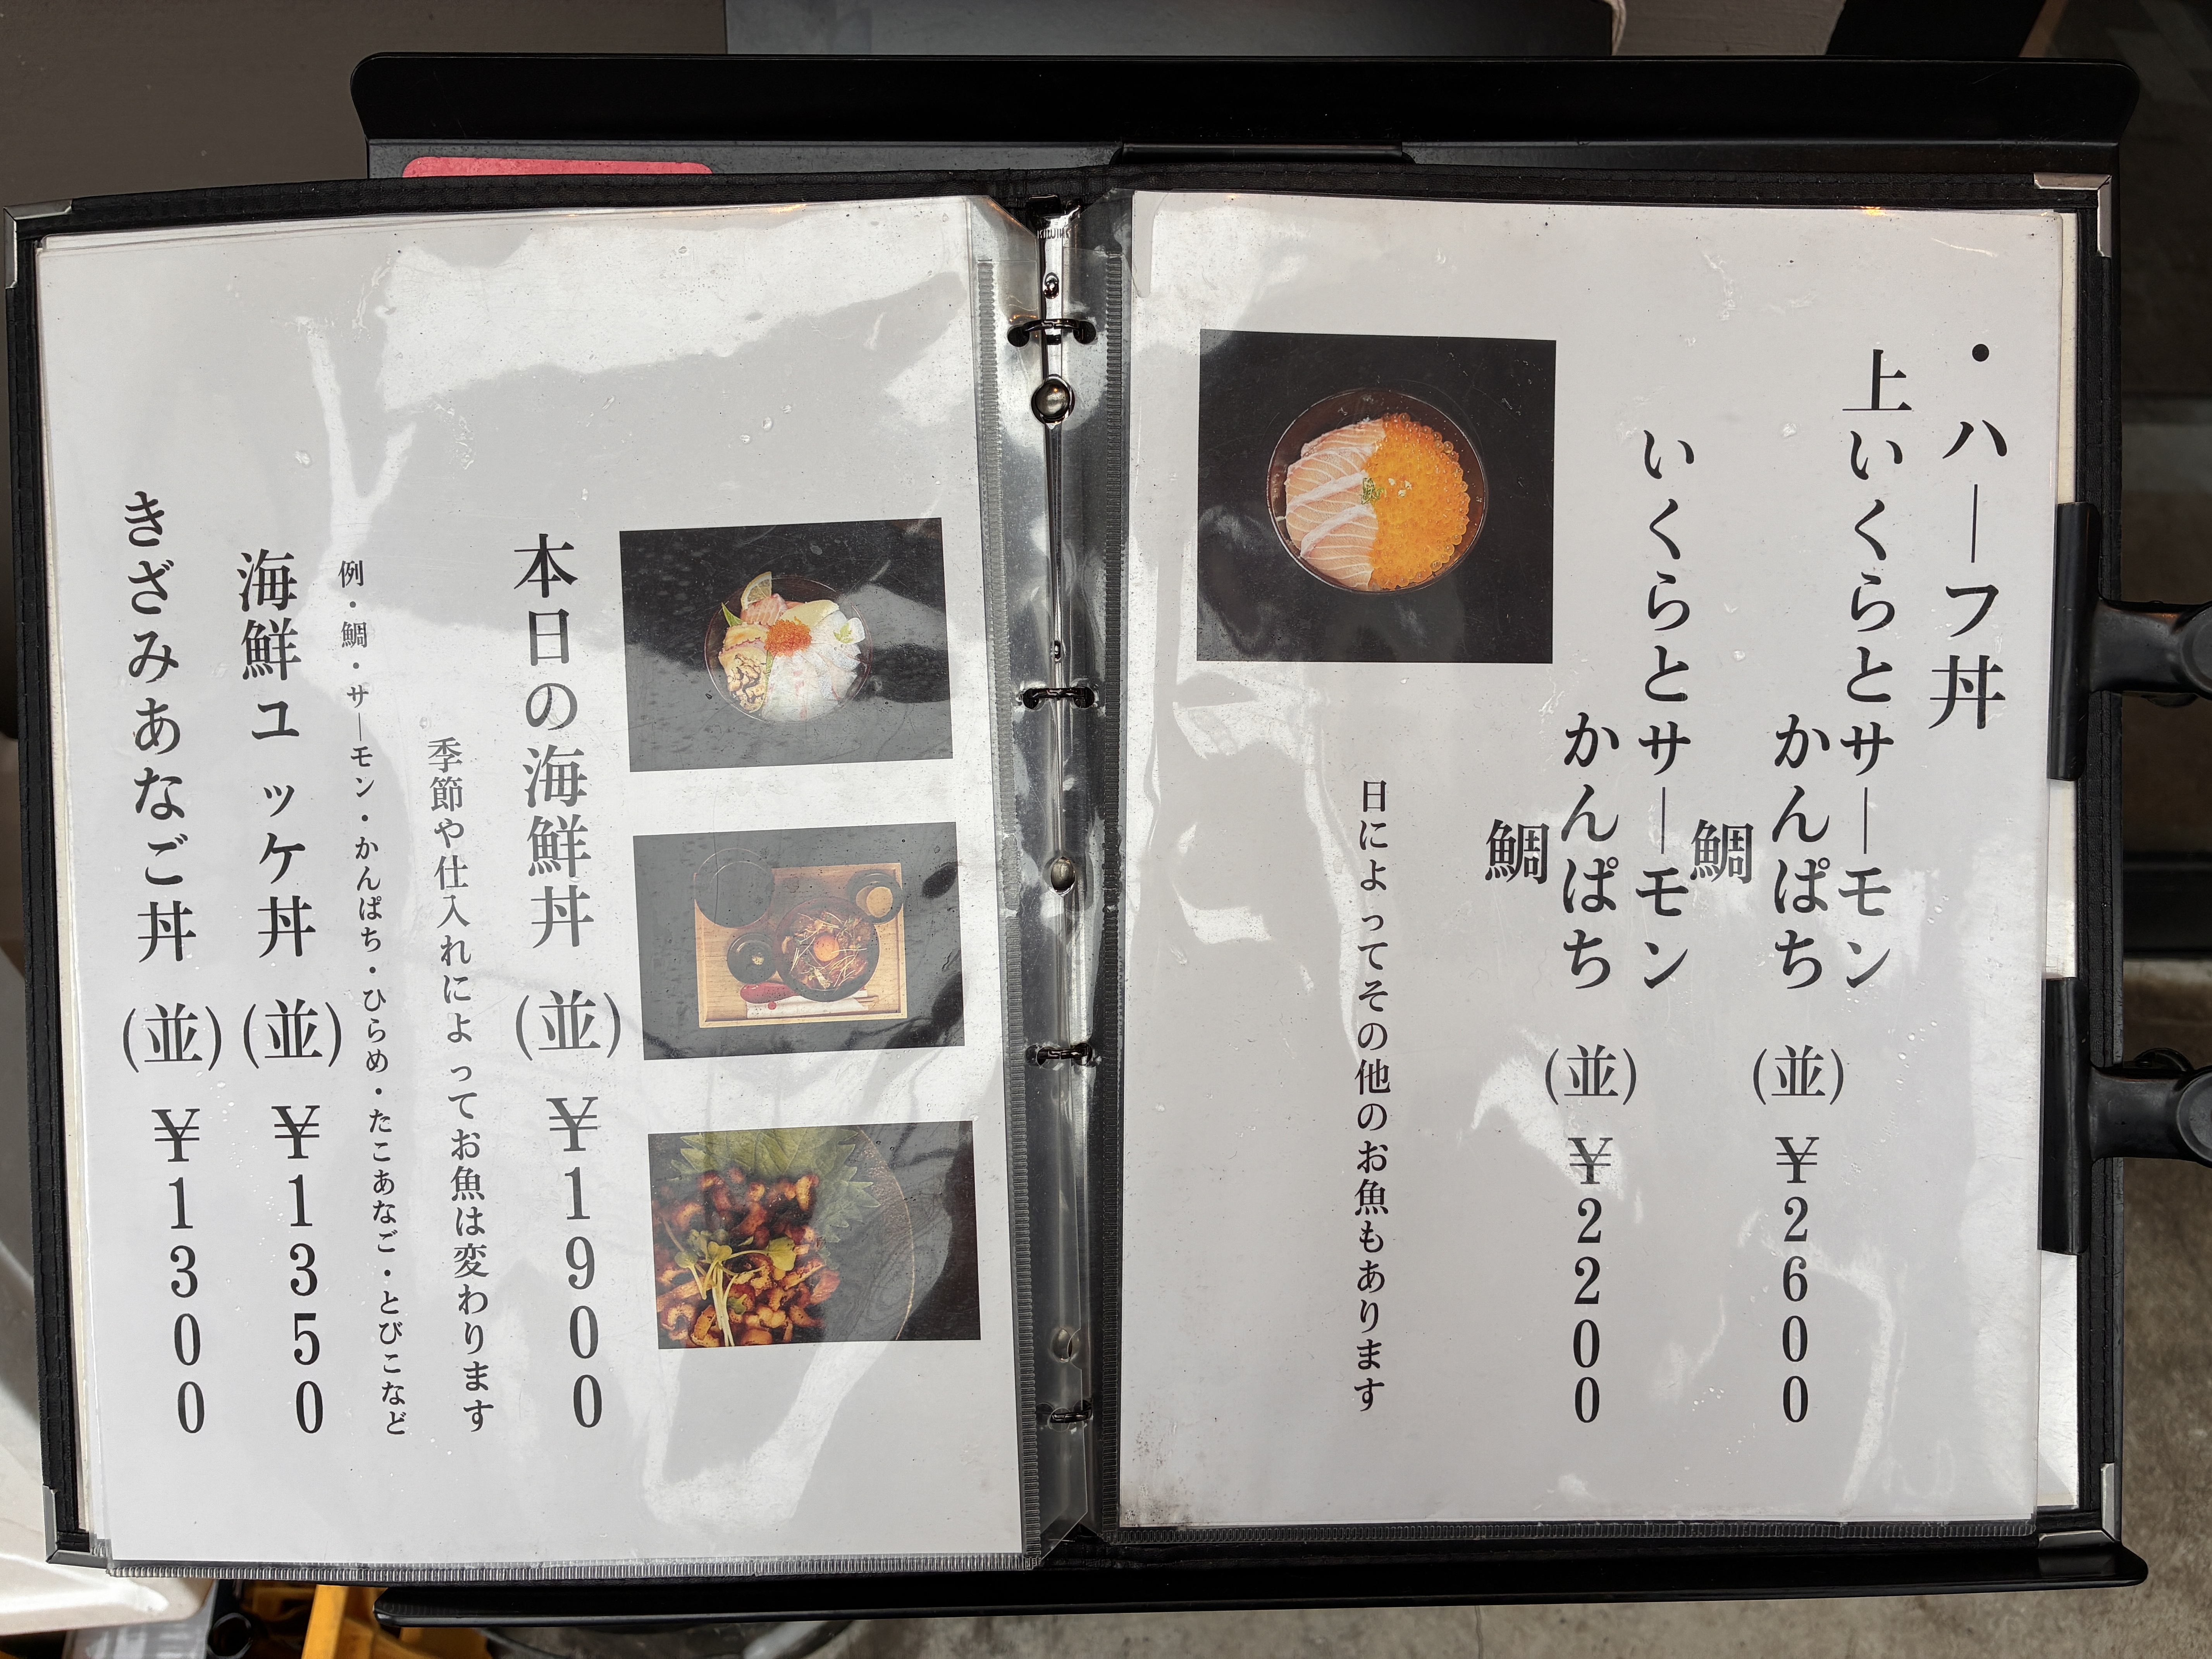 ・ハーフ丼
上いくらとサーモン
かんぱち
鯛
(並)¥2600
いくらとサーモン
かんぱち
鯛
(並)¥2200
日によってその他のお魚もあります
本日の海鮮丼(並)¥1900
季節や仕入れによってお魚は変わります
例・鯛・サーモン・かんぱち・ひらめ・たこあなご・とびこなど
海鮮ユッケ丼(並)¥1350
きざみあなご丼(並)¥1300